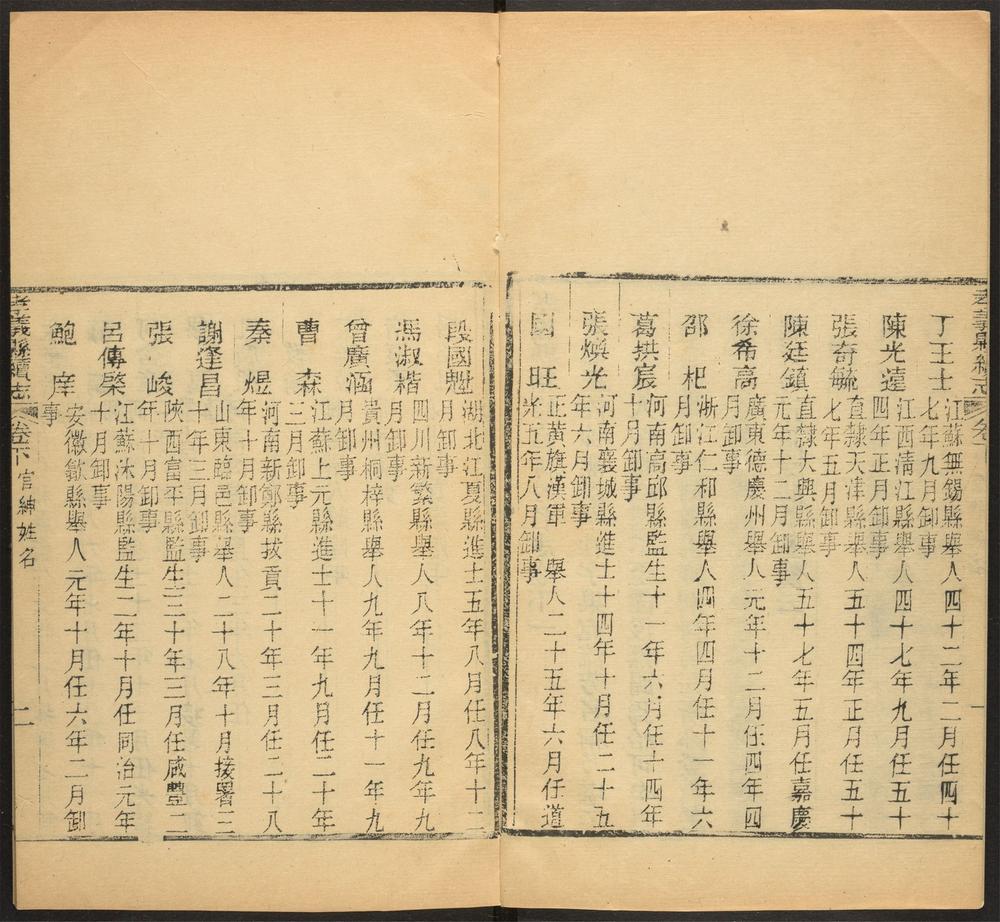 孝義縣續志
丁王士　江蘇無錫縣舉人四十二年二月任四十
七年九月卸事
陳光遠　江西清江縣舉人四十七年九月任五十
四年正月卸事
張奇毓　直隸天津縣舉人五十四年正月任五十
七年五月卸事
陳廷鎮　直隸大興縣舉人五十七年五月任嘉慶
元年十二月卸事
徐希高　廣東德慶州舉人元年十二月任四年四
月卸事
邵　杞　浙江仁和縣舉人四年四月任十一年六
月卸事
葛拱宸　河南高邱縣監生十一年六月任十四年
十月卸事
張煥光　河南襄城縣進士十四年十月任二十五
年六月卸事
國　旺　正黃旗漢軍　舉人二十五年六月任道
光五年八月卸事
段國魁　湖北江夏縣進士五年八月任八年十二
月卸事
馮淑楷　四川新繁縣舉人八年十二月任九年九
月卸事
曾廣涵　貴州桐梓縣舉人九年九月任十一年九
月卸事
曹　森　江蘇上元縣進士十一年九月任二十年
三月卸事
秦　煜　河南新鄭縣拔貢二十年三月任二十八
年十月卸事
謝逢昌　山東臨邑縣舉人二十八年十月接署三
十年三月卸事
張　峻　陝西富平縣監生三十年三月任咸豐二
年十月卸事
呂傳棨　江蘇沭陽縣監生二年十月任同治元年
十月卸事
鮑　庠　安徽歙縣舉人元年十月任六年二月卸
事
孝義縣續志　卷下　官紳姓名　二